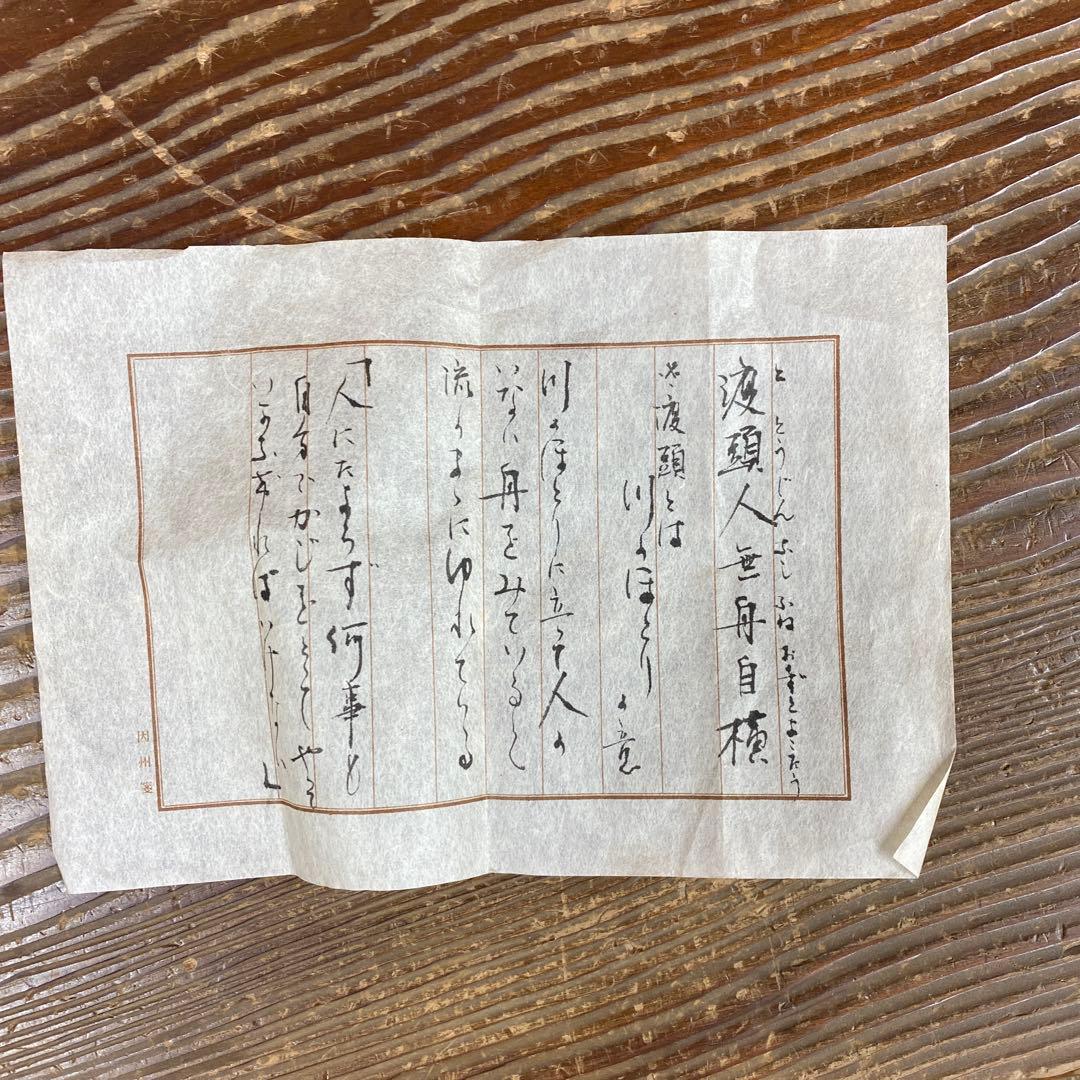 と とうじん なし ふね おのずとよこたう
渡頭人無舟自横
渡頭とは
川のほとり
の意
川のほとりに立って人の
いない舟をみていると
流のままにゆれている
「人にたよらず何事も
自分でかじをとって
ければいけない」
因州箋